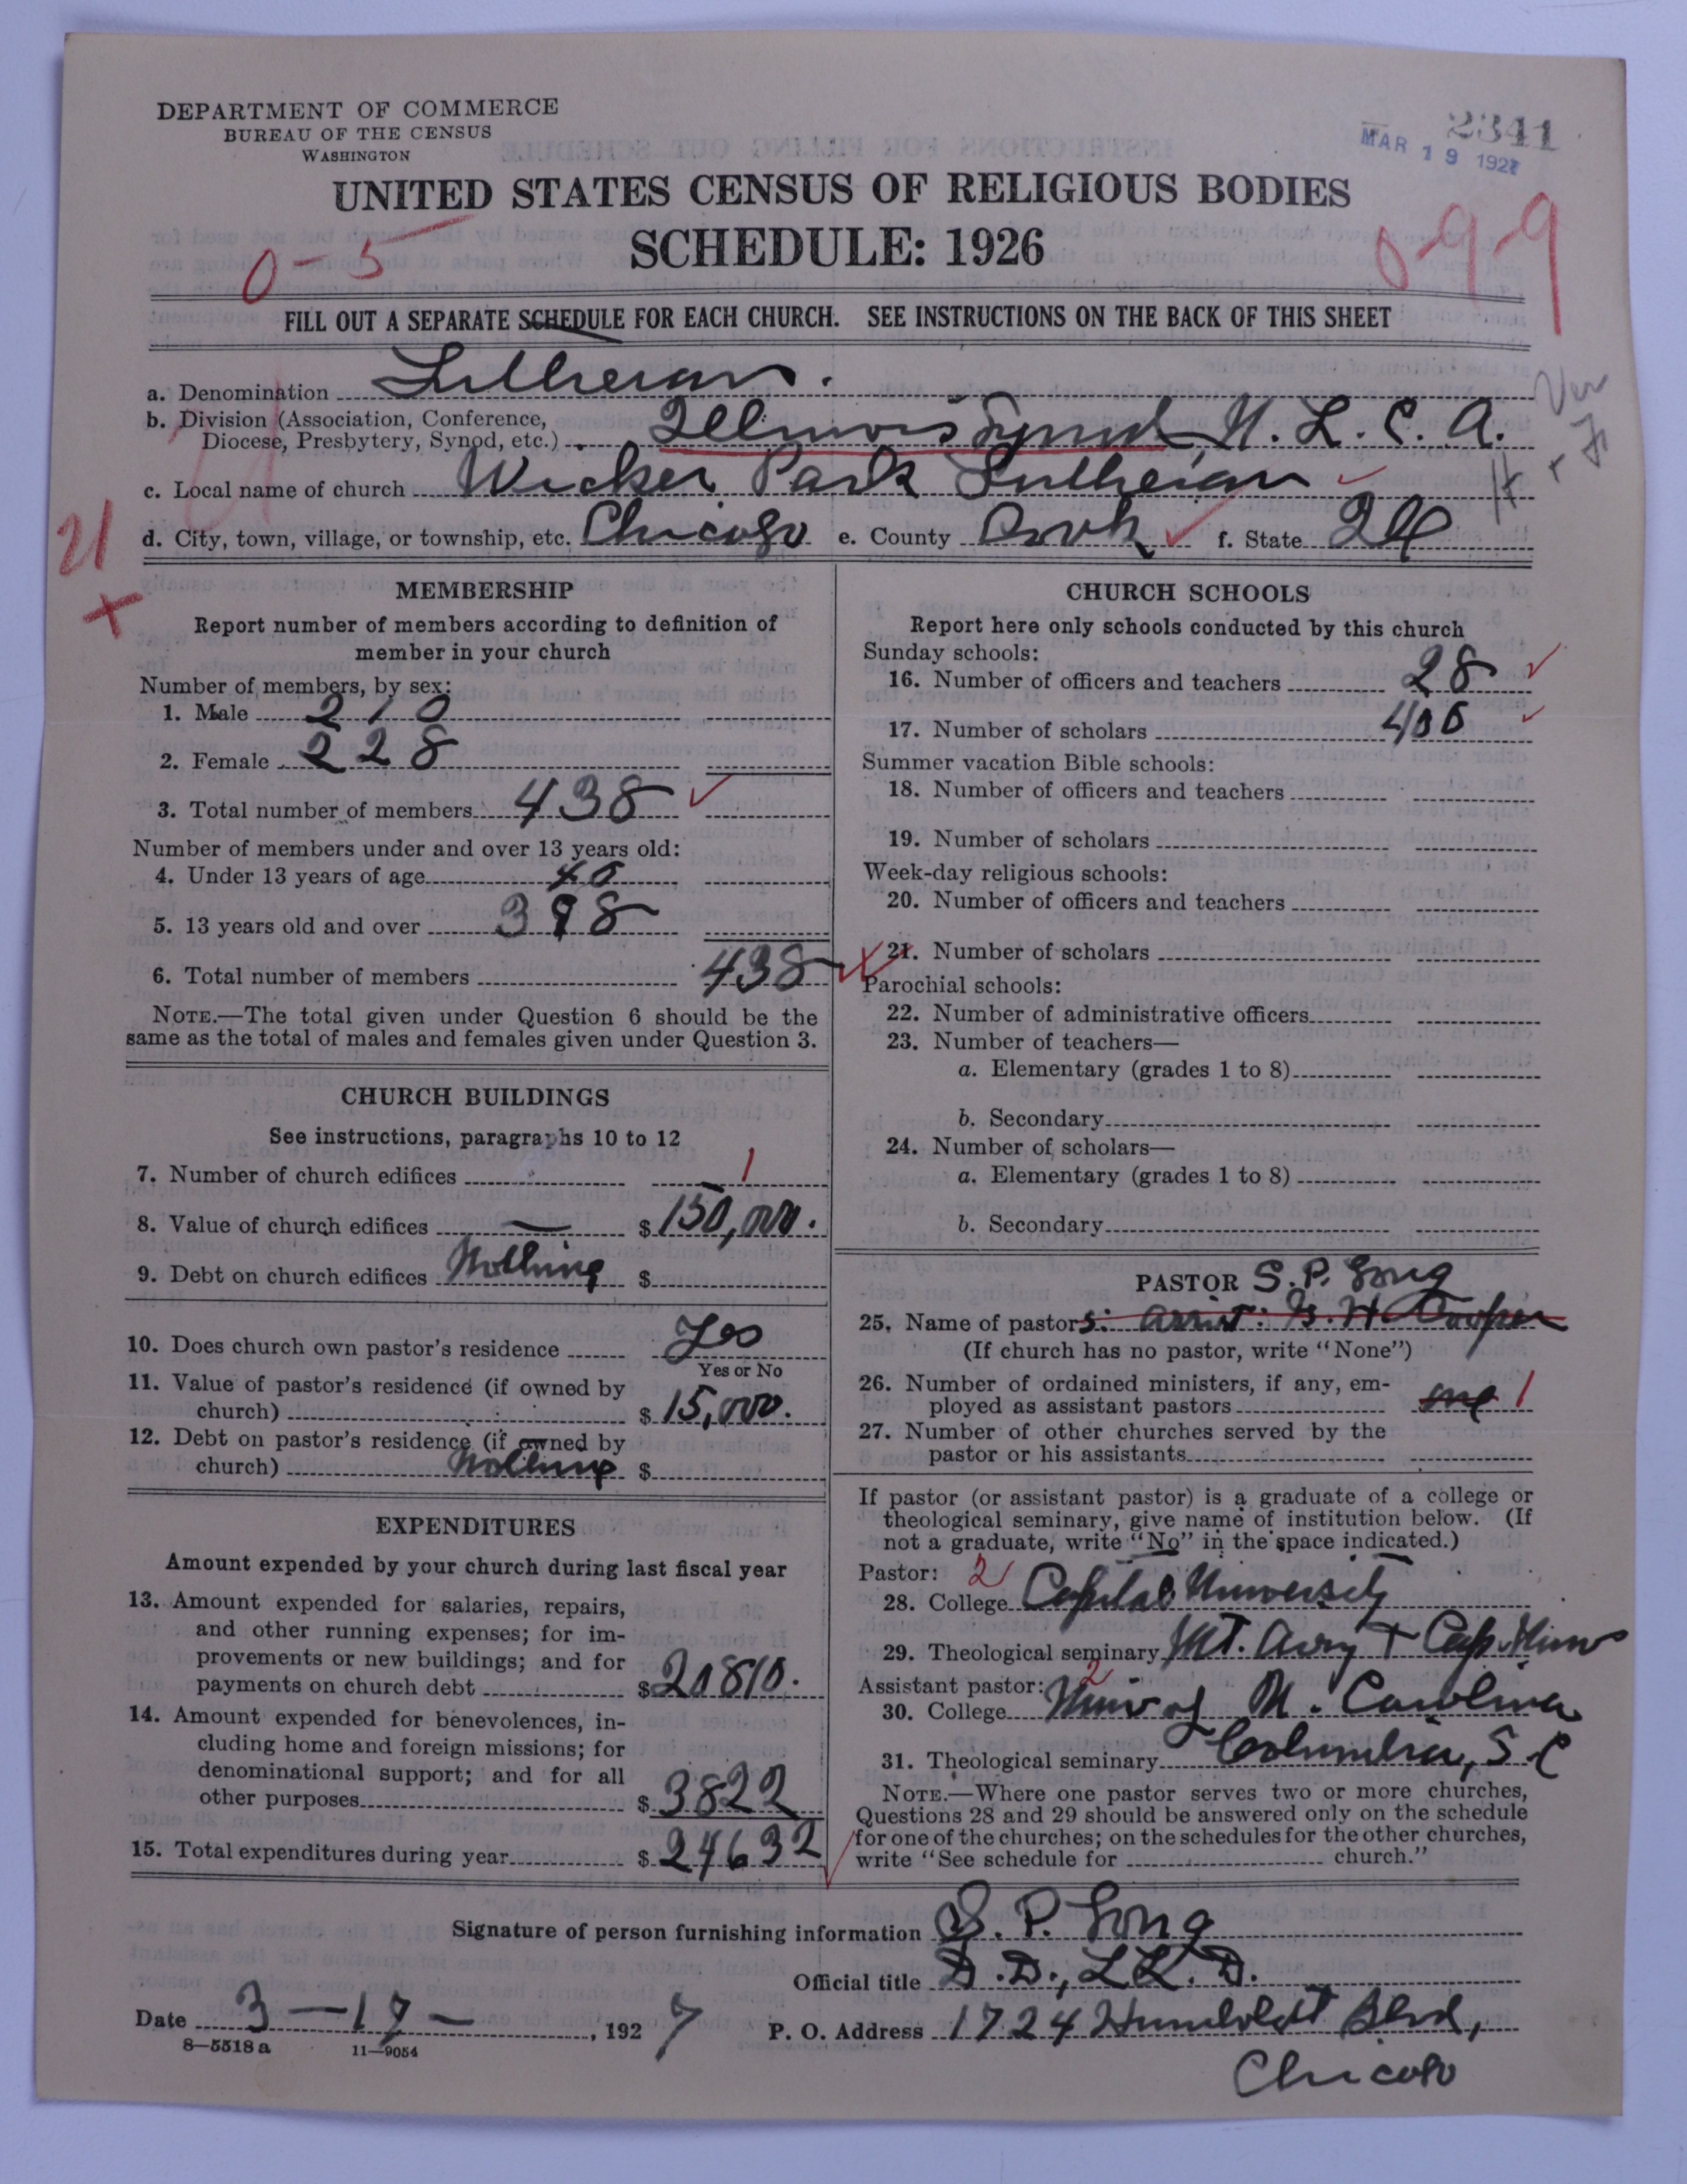 DEPARTMENT OF COMMERCE
BUREAU OF THE CENSUS
WASHINGTON
2341
MAR 19 1927
UNITED STATES CENSUS OF RELIGIOUS BODIES
SCHEDULE: 1926
0-5
0-9-9
FILL OUT A SEPARATE SCHEDULE FOR EACH CHURCH. SEE INSTRUCTIONS ON THE BACK OF THIS SHEET
a. Denomination Lutheran.
b. Division (Association, Conference,
Diocese, Presbytery, Synod, etc.) Illinois Synod, U. L. C. A.
c. Local name of church Wicker Park Lutheran
d. City, town, village, or township, etc. Chicago e. County Cook f. State Ill
21
+
MEMBERSHIP
Report number of members according to definition of
member in your church
Number of members, by sex:
1. Male 210
2. Female 228
3. Total number of members 438
Number of members under and over 13 years old:
4. Under 13 years of age 40
5. 13 years old and over 398
6. Total number of members 438
NOTE.—The total given under Question 6 should be the
same as the total of males and females given under Question 3.
CHURCH BUILDINGS
See instructions, paragraphs 10 to 12
7. Number of church edifices 1
8. Value of church edifices — $150,000.
9. Debt on church edifices Nothing $
10. Does church own pastor's residence Yes
Yes or No
11. Value of pastor's residence (if owned by
church) $15,000.
12. Debt on pastor's residence (if owned by
church) Nothing $
EXPENDITURES
Amount expended by your church during last fiscal year
13. Amount expended for salaries, repairs,
and other running expenses; for im-
provements or new buildings; and for
payments on church debt $20810.
14. Amount expended for benevolences, in-
cluding home and foreign missions; for
denominational support; and for all
other purposes $3822
15. Total expenditures during year $24632
CHURCH SCHOOLS
Report here only schools conducted by this church
Sunday schools:
16. Number of officers and teachers 28
17. Number of scholars 400
Summer vacation Bible schools:
18. Number of officers and teachers
19. Number of scholars
Week-day religious schools:
20. Number of officers and teachers
21. Number of scholars
Parochial schools:
22. Number of administrative officers
23. Number of teachers—
a. Elementary (grades 1 to 8)
b. Secondary
24. Number of scholars—
a. Elementary (grades 1 to 8)
b. Secondary
PASTOR S. P. Long
25. Name of pastors: Assist: G. H. Cooper
(If church has no pastor, write "None")
26. Number of ordained ministers, if any, em-
ployed as assistant pastors one 1
27. Number of other churches served by the
pastor or his assistants
If pastor (or assistant pastor) is a graduate of a college or
theological seminary, give name of institution below. (If
not a graduate, write "No" in the space indicated.)
Pastor: 2
28. College Capital University
29. Theological seminary Mt. Airy + Cap. Univ
Assistant pastor: 2
30. College Univ of N. Carolina
31. Theological seminary Columbia, S.C
NOTE.—Where one pastor serves two or more churches,
Questions 28 and 29 should be answered only on the schedule
for one of the churches; on the schedules for the other churches,
write "See schedule for church."
Signature of person furnishing information S. P. Long
Official title D.D., LL.D.
Date 3—17—, 1927 P. O. Address 1724 Humboldt Blvd,
8—5518 a 11—9054
Chicago